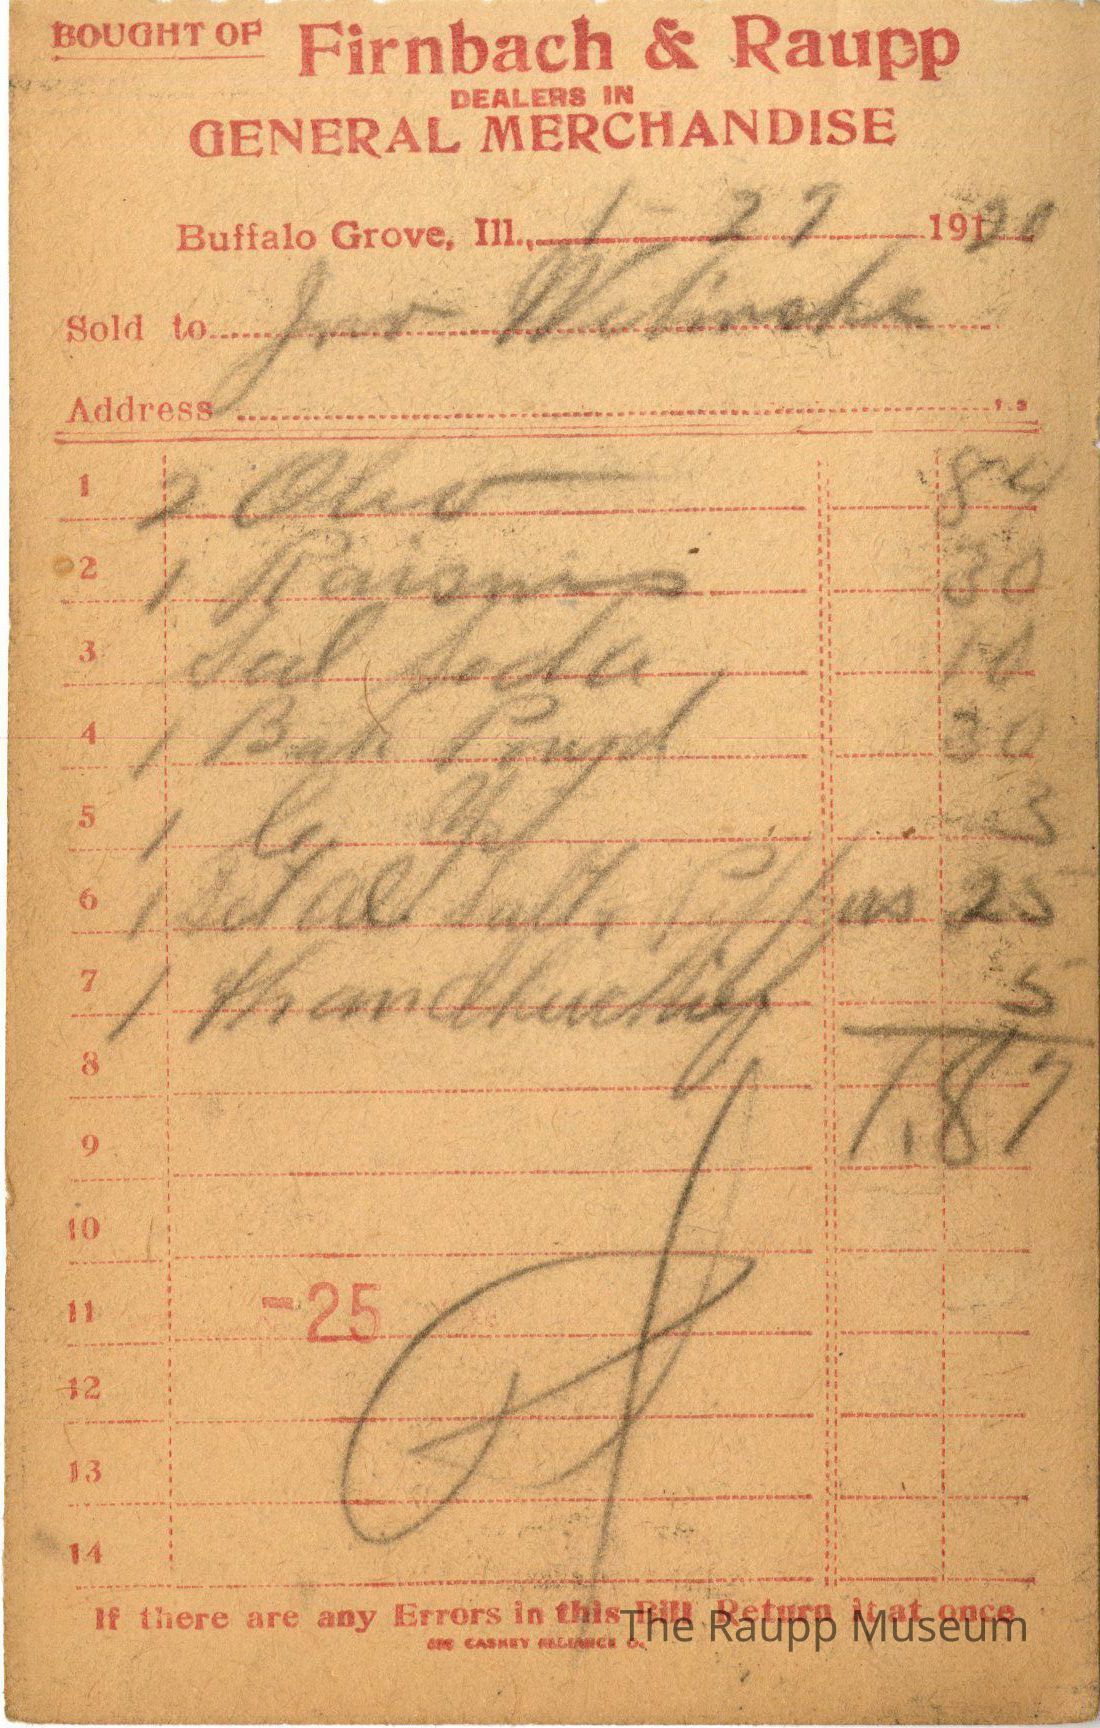 BOUGHT OF Firnbach & Raupp
DEALERS IN
GENERAL MERCHANDISE
Buffalo Grove, Ill., 1-27 1920
Sold to
Address
1 2 Oleo 84
2 1 Raisins 30
3 Sal Soda 10
4 1 Bak Powd 30
5 1 3
6 1 Salt 25
7 1 Handkerchief 5
8 1.87
9
10
11 -25
12
13
14
If there are any Errors in this Bill Return it at once
The Raupp Museum